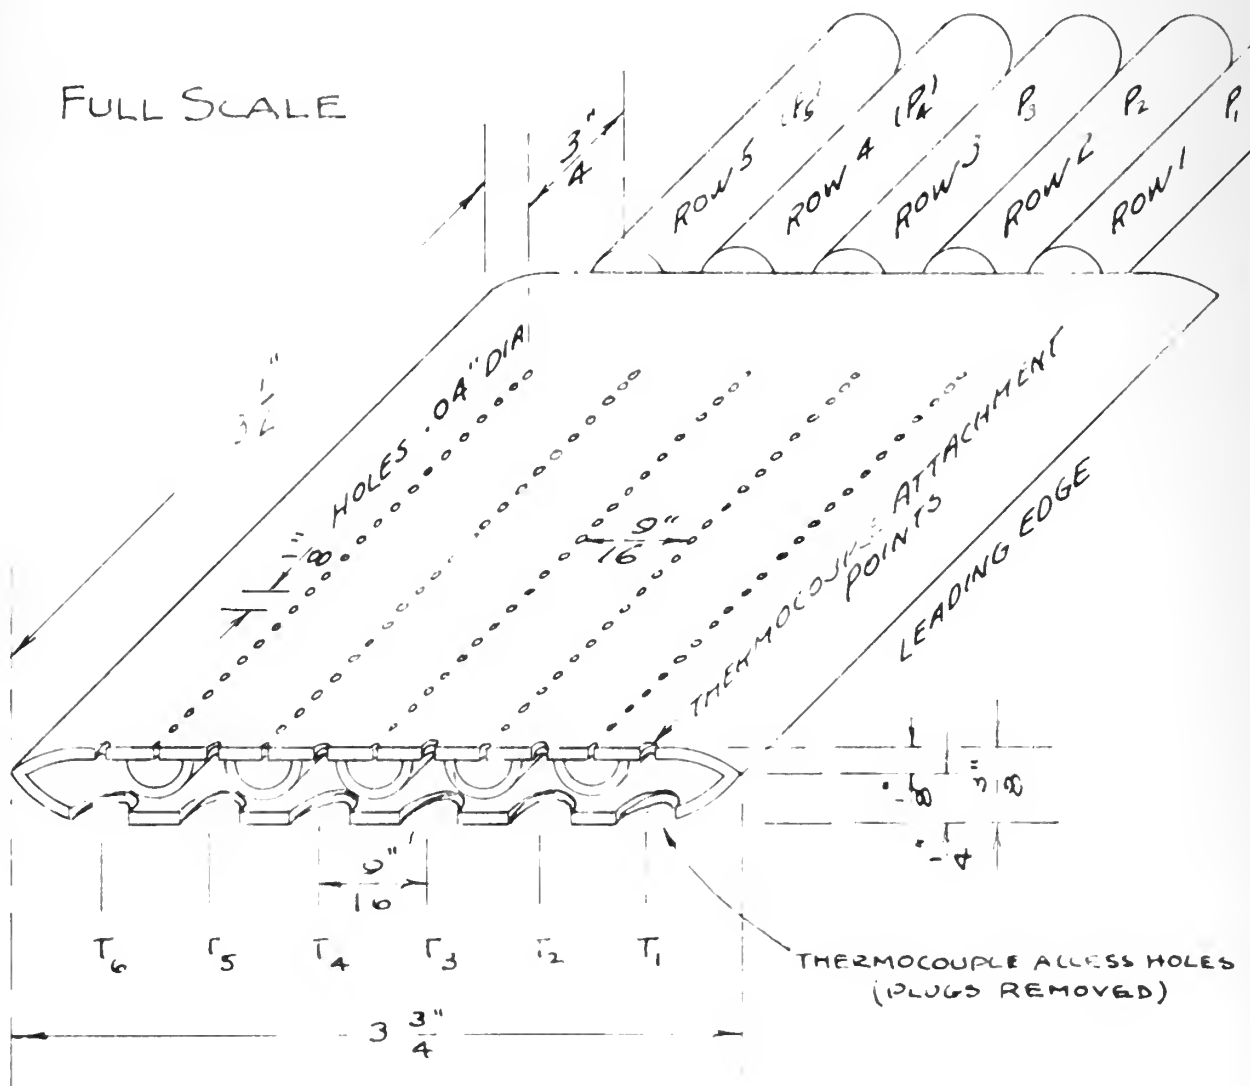 FULL SCALE
3/4"
ROW 5
ROW 4 (P4)
ROW 3 P3
ROW 2 P2
ROW 1 P1
3 1/2"
HOLES .04" DIA
1/8"
9/16"
THERMOCOUPLE ATTACHMENT
POINTS
LEADING EDGE
1/8"
3/8"
1/4"
9/16"
T6 T5 T4 T3 T2 T1
THERMOCOUPLE ACCESS HOLES
(PLUGS REMOVED)
3 3/4"